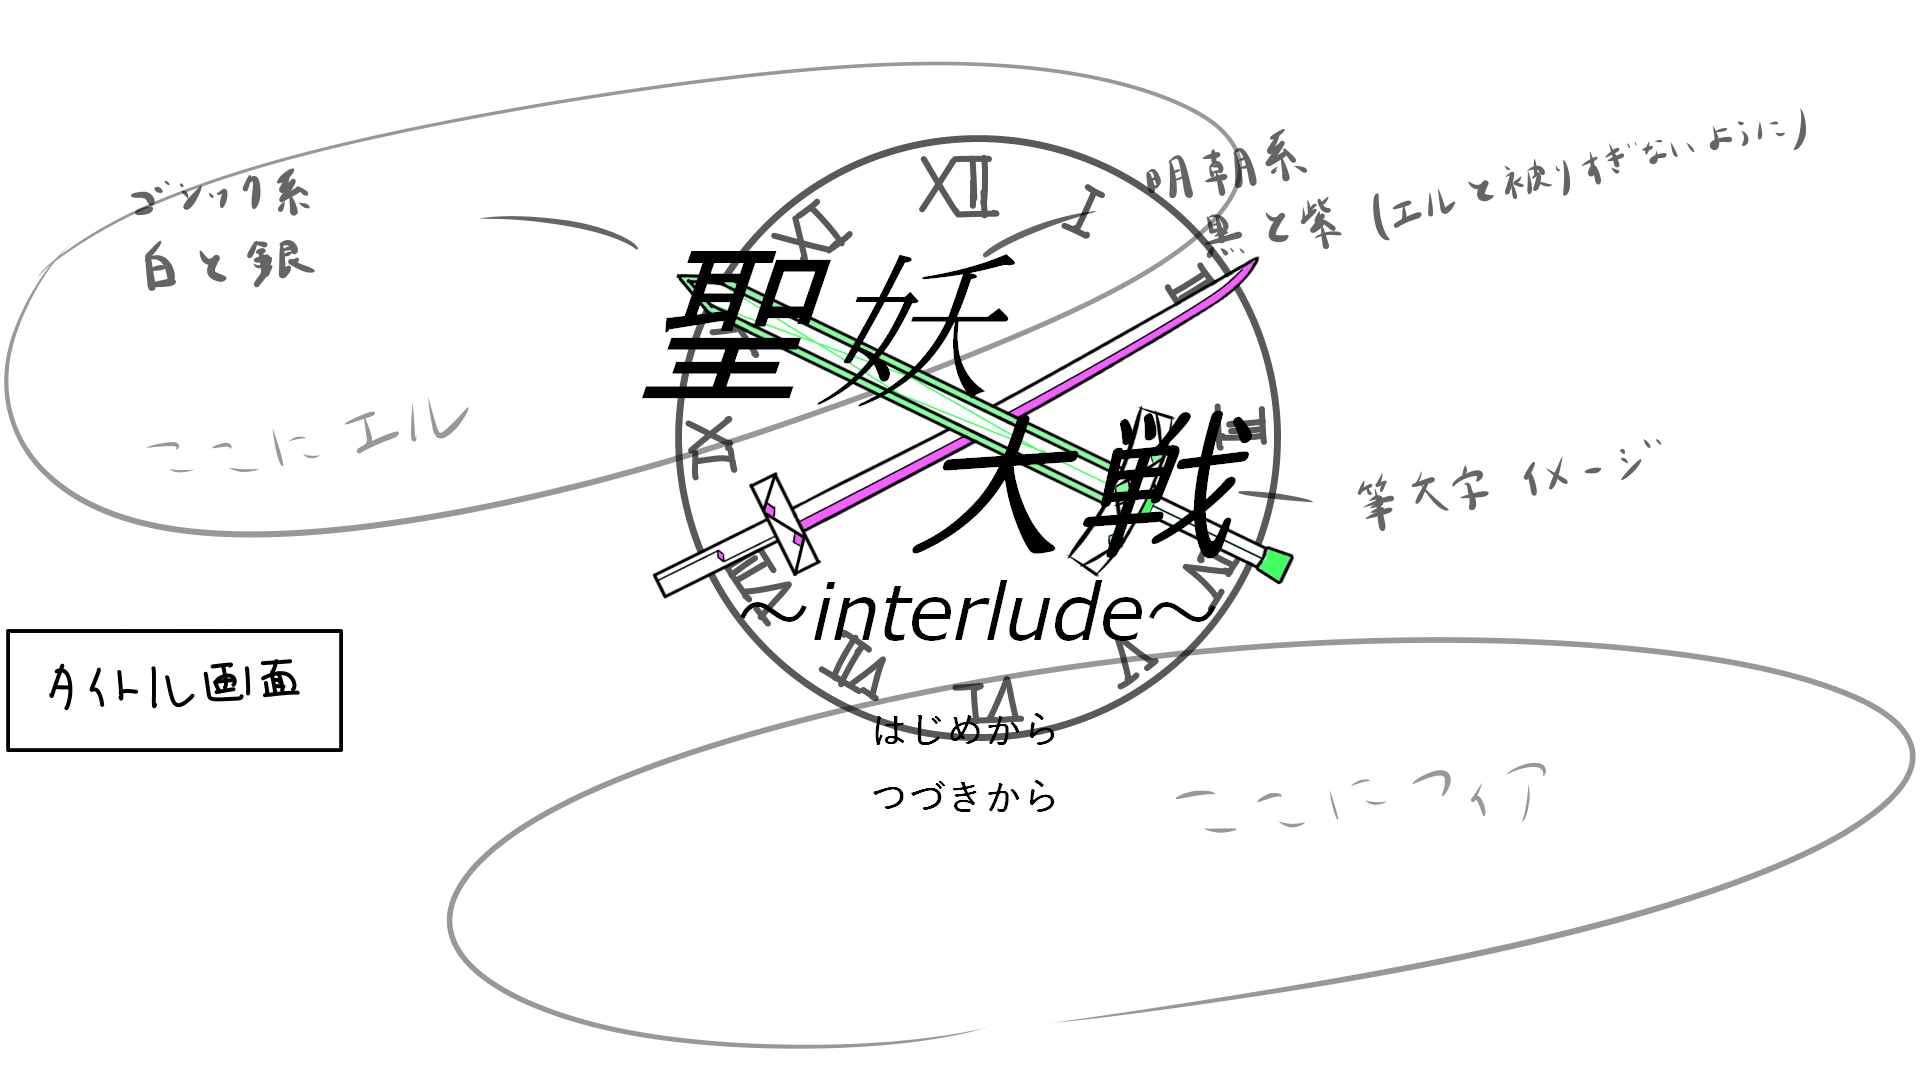 ゴシック系
白と銀
明朝系
黒と紫（エルと被りすぎないように）
XII
I
II
III
IV
V
VI
VII
VIII
IX
XI
聖妖
大戦
～interlude～
ここにエル
筆文字イメージ
タイトル画面
はじめから
つづきから
ここにフィア